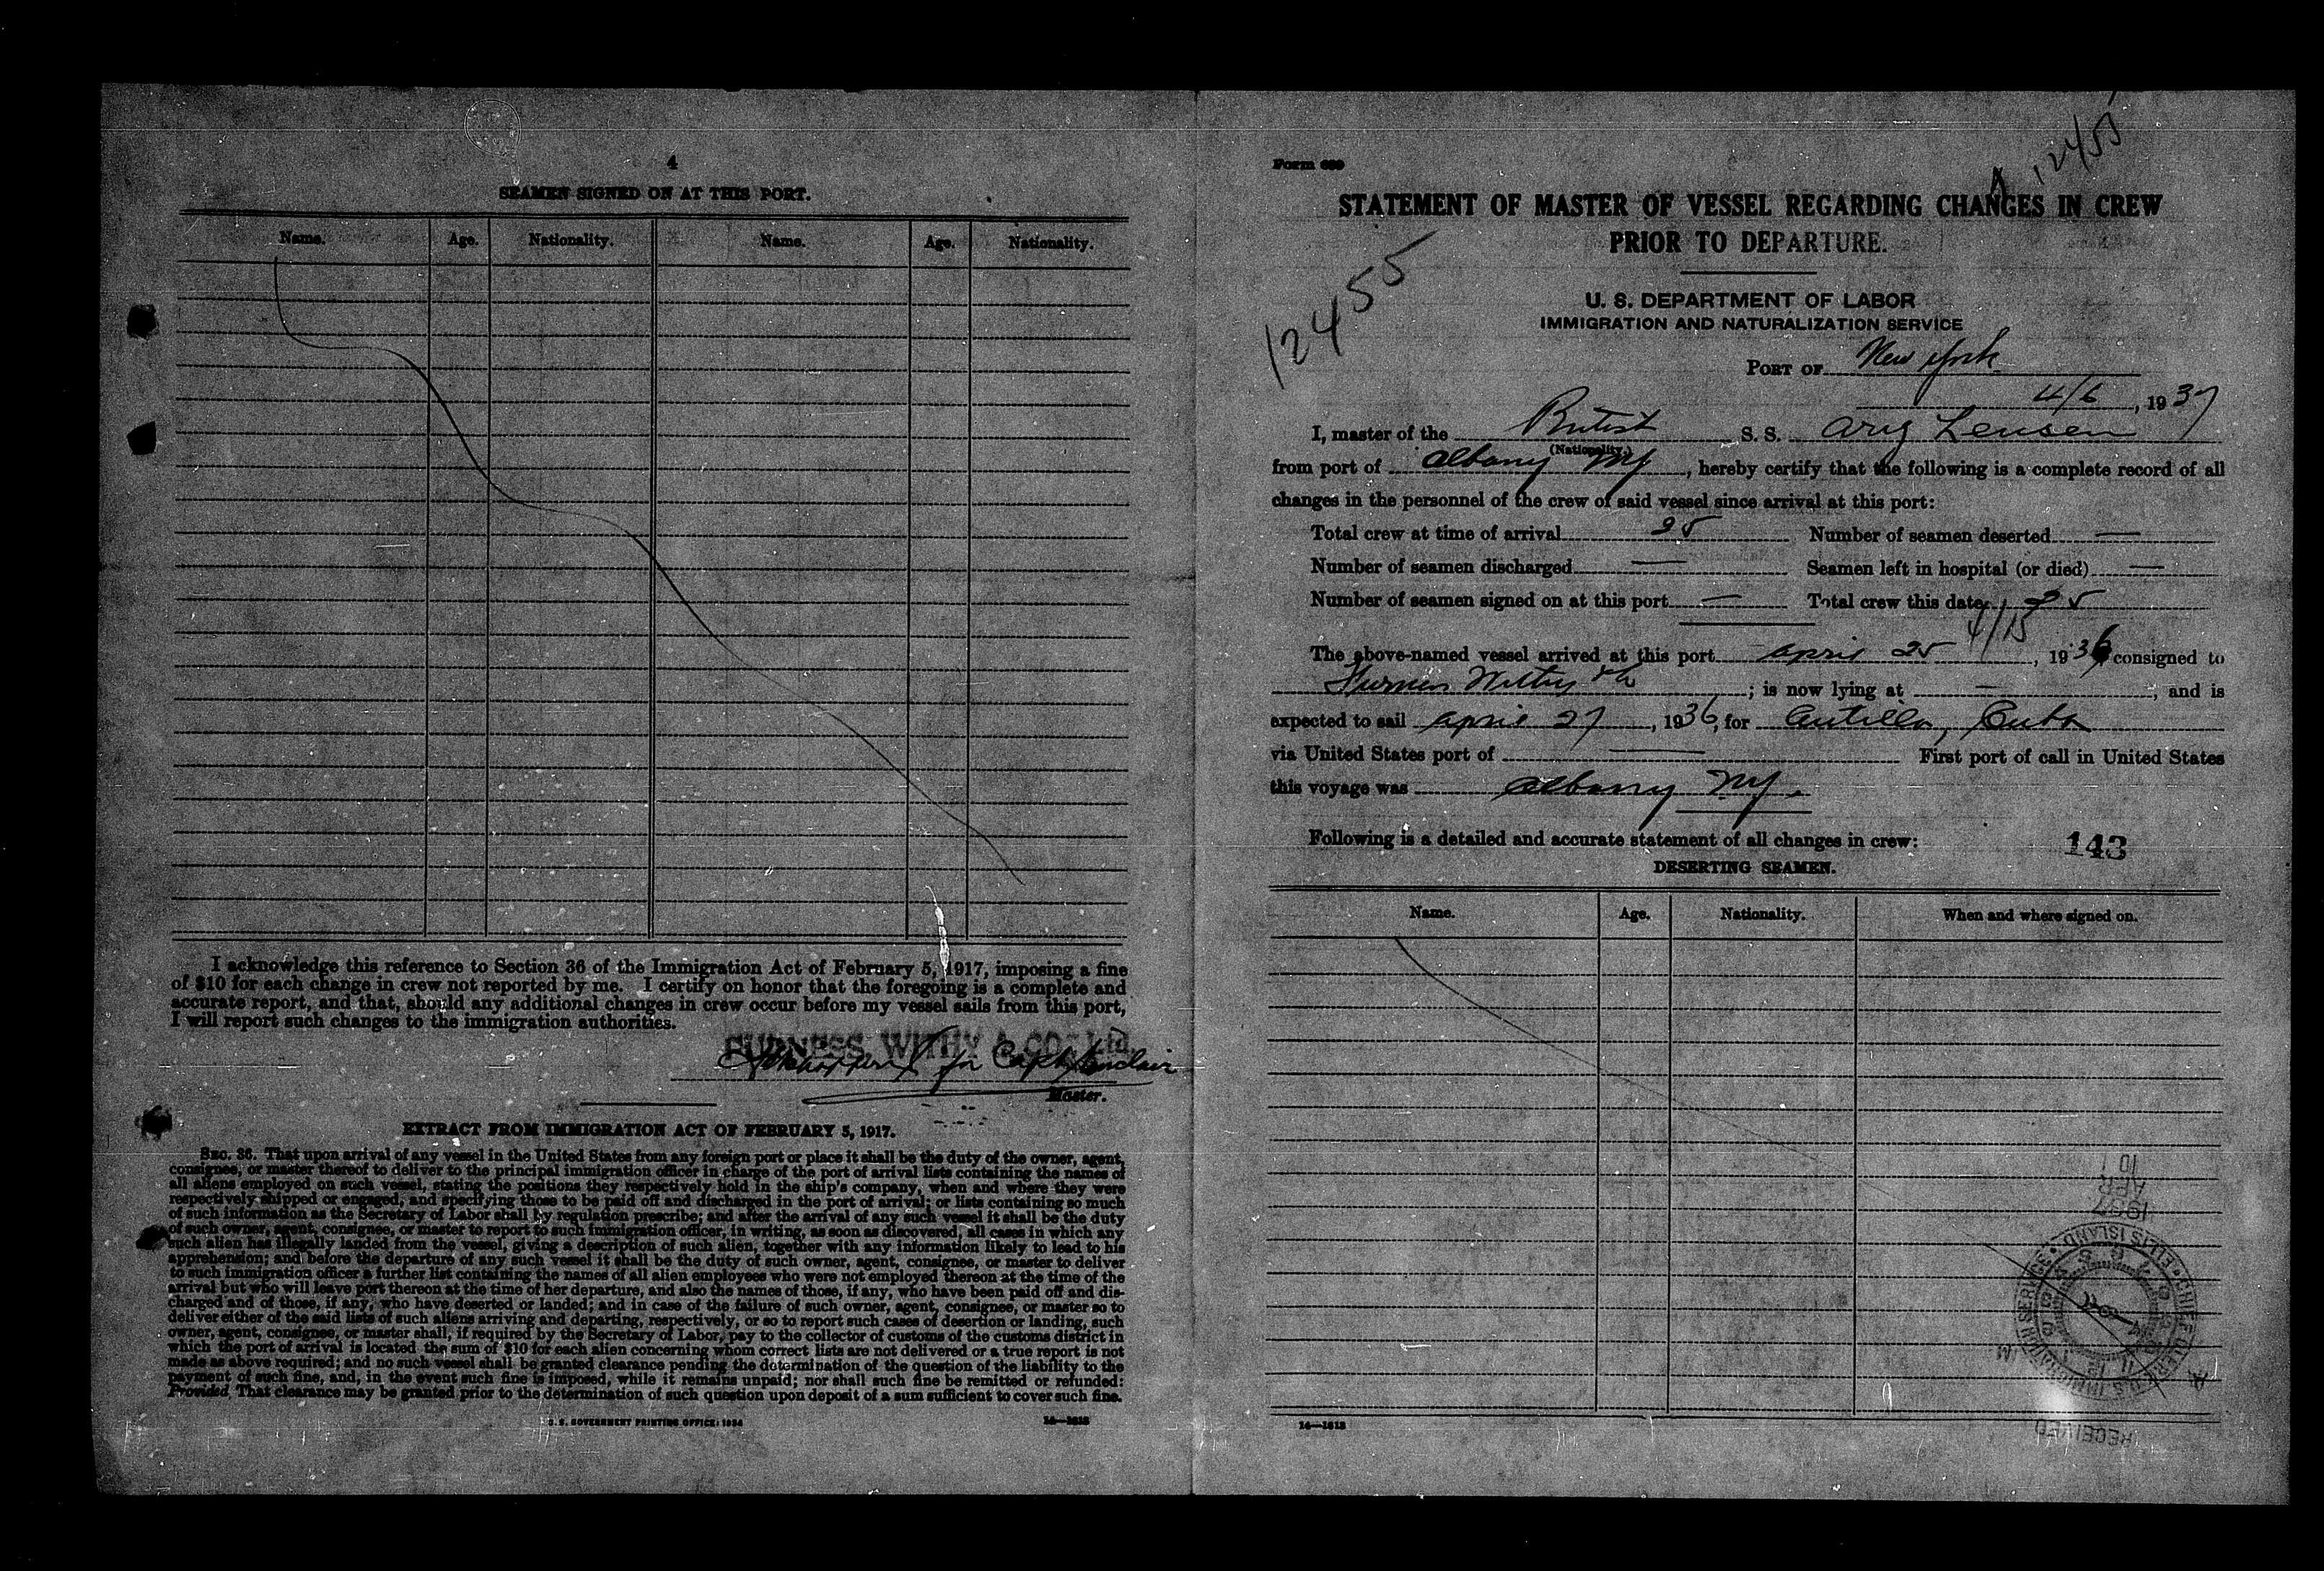 4
SEAMEN SIGNED ON AT THIS PORT.
Name. Age. Nationality. Name. Age. Nationality.
I acknowledge this reference to Section 36 of the Immigration Act of February 5, 1917, imposing a fine
of $10 for each change in crew not reported by me. I certify on honor that the foregoing is a complete and
accurate report, and that, should any additional changes in crew occur before my vessel sails from this port,
I will report such changes to the immigration authorities.
FURNESS WITHY & CO. Ltd.
for Capt Sinclair
Master.
EXTRACT FROM IMMIGRATION ACT OF FEBRUARY 5, 1917.
SEC. 36. That upon arrival of any vessel in the United States from any foreign port or place it shall be the duty of the owner, agent,
consignee, or master thereof to deliver to the principal immigration officer in charge of the port of arrival lists containing the names of
all aliens employed on such vessel, stating the positions they respectively hold in the ship's company, when and where they were
respectively shipped or engaged, and specifying those to be paid off and discharged in the port of arrival; or lists containing so much
of such information as the Secretary of Labor shall by regulation prescribe; and after the arrival of any such vessel it shall be the duty
of such owner, agent, consignee, or master to report to such immigration officer, in writing, as soon as discovered, all cases in which any
such alien has illegally landed from the vessel, giving a description of such alien, together with any information likely to lead to his
apprehension; and before the departure of any such vessel it shall be the duty of such owner, agent, consignee, or master to deliver
to such immigration officer a further list containing the names of all alien employees who were not employed thereon at the time of the
arrival but who will leave port thereon at the time of her departure, and also the names of those, if any, who have been paid off and dis-
charged and of those, if any, who have deserted or landed; and in case of the failure of such owner, agent, consignee, or master so to
deliver either of the said lists of such aliens arriving and departing, respectively, or so to report such cases of desertion or landing, such
owner, agent, consignee, or master shall, if required by the Secretary of Labor, pay to the collector of customs of the customs district in
which the port of arrival is located the sum of $10 for each alien concerning whom correct lists are not delivered or a true report is not
made as above required; and no such vessel shall be granted clearance pending the determination of the question of the liability to the
payment of such fine, and, in the event such fine is imposed, while it remains unpaid; nor shall such fine be remitted or refunded:
Provided, That clearance may be granted prior to the determination of such question upon deposit of a sum sufficient to cover such fine.
U. S. GOVERNMENT PRINTING OFFICE: 1934 14—1613
12455
Form 689
STATEMENT OF MASTER OF VESSEL REGARDING CHANGES IN CREW
PRIOR TO DEPARTURE.
12455
U. S. DEPARTMENT OF LABOR
IMMIGRATION AND NATURALIZATION SERVICE
PORT OF New York
4/6, 1937
I, master of the British S. S. Arug Lensen
(Nationality)
from port of Albany NY, hereby certify that the following is a complete record of all
changes in the personnel of the crew of said vessel since arrival at this port:
Total crew at time of arrival 25 Number of seamen deserted —
Number of seamen discharged — Seamen left in hospital (or died) —
Number of seamen signed on at this port — Total crew this date 25
4/15
The above-named vessel arrived at this port April 25, 1936 consigned to
Furness Withy & Co; is now lying at —, and is
expected to sail April 27, 1936, for Antilla, Cuba
via United States port of — First port of call in United States
this voyage was Albany NY.
Following is a detailed and accurate statement of all changes in crew: 143
DESERTING SEAMEN.
Name. Age. Nationality. When and where signed on.
1937
APR
10
CHIEF CLERK U.S. IMMIGRATION SERVICE ELLIS ISLAND
RECEIVED
14—1613